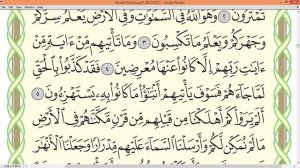 Mushaf Madinah.pdf (SECURED) - Adobe Reader
تَمْتَرُونَ ٢ وَهُوَ ٱللَّهُ فِى ٱلسَّمَٰوَٰتِ وَفِى ٱلْأَرْضِ يَعْلَمُ سِرَّكُمْ
وَجَهْرَكُمْ وَيَعْلَمُ مَا تَكْسِبُونَ ٣ وَمَا تَأْتِيهِم مِّنْ ءَايَةٍ مِّنْ
ءَايَٰتِ رَبِّهِمْ إِلَّا كَانُوا۟ عَنْهَا مُعْرِضِينَ ٤ فَقَدْ كَذَّبُوا۟ بِٱلْحَقِّ
لَمَّا جَآءَهُمْ فَسَوْفَ يَأْتِيهِمْ أَنۢبَٰٓؤُا۟ مَا كَانُوا۟ بِهِۦ يَسْتَهْزِءُونَ ٥
أَلَمْ يَرَوْا۟ كَمْ أَهْلَكْنَا مِن قَبْلِهِم مِّن قَرْنٍ مَّكَّنَّٰهُمْ فِى ٱلْأَرْضِ
مَا لَمْ نُمَكِّن لَّكُمْ وَأَرْسَلْنَا ٱلسَّمَآءَ عَلَيْهِم مِّدْرَارًا وَجَعَلْنَا ٱلْأَنْهَٰرَ